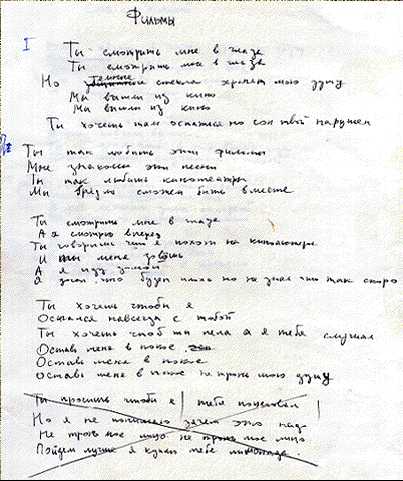 Фильмы
I
Ты смотришь мне в глаза
Ты смотришь мне в глаза
Но темные стекла хранят мою душу
Мы вышли из кино
Мы вышли из кино
Ты хочешь там остаться но сон твой нарушен
Ты так любишь эти фильмы
Мне знакомы эти песни
Ты так любишь кинотеатры
Мы вряд ли сможем быть вместе
Ты смотришь мне в глаза
А я смотрю вперед
Ты говоришь что я похож на киноактера
И ты меня зовешь
А я иду домой
Я знал что будет плохо но не знал что так скоро
Ты хочешь чтобы я
Остался навсегда с тобой
Ты хочешь чтоб ты пела а я тебя слушал
Оставь меня в покое
Оставь меня в покое
Оставь меня в покое не тронь мою душу
Ты просишь чтобы я тебя поцеловал
Но я не понимаю зачем это надо
Не тронь мое лицо не тронь мое лицо
Пойдем лучше я куплю тебе лимонада.